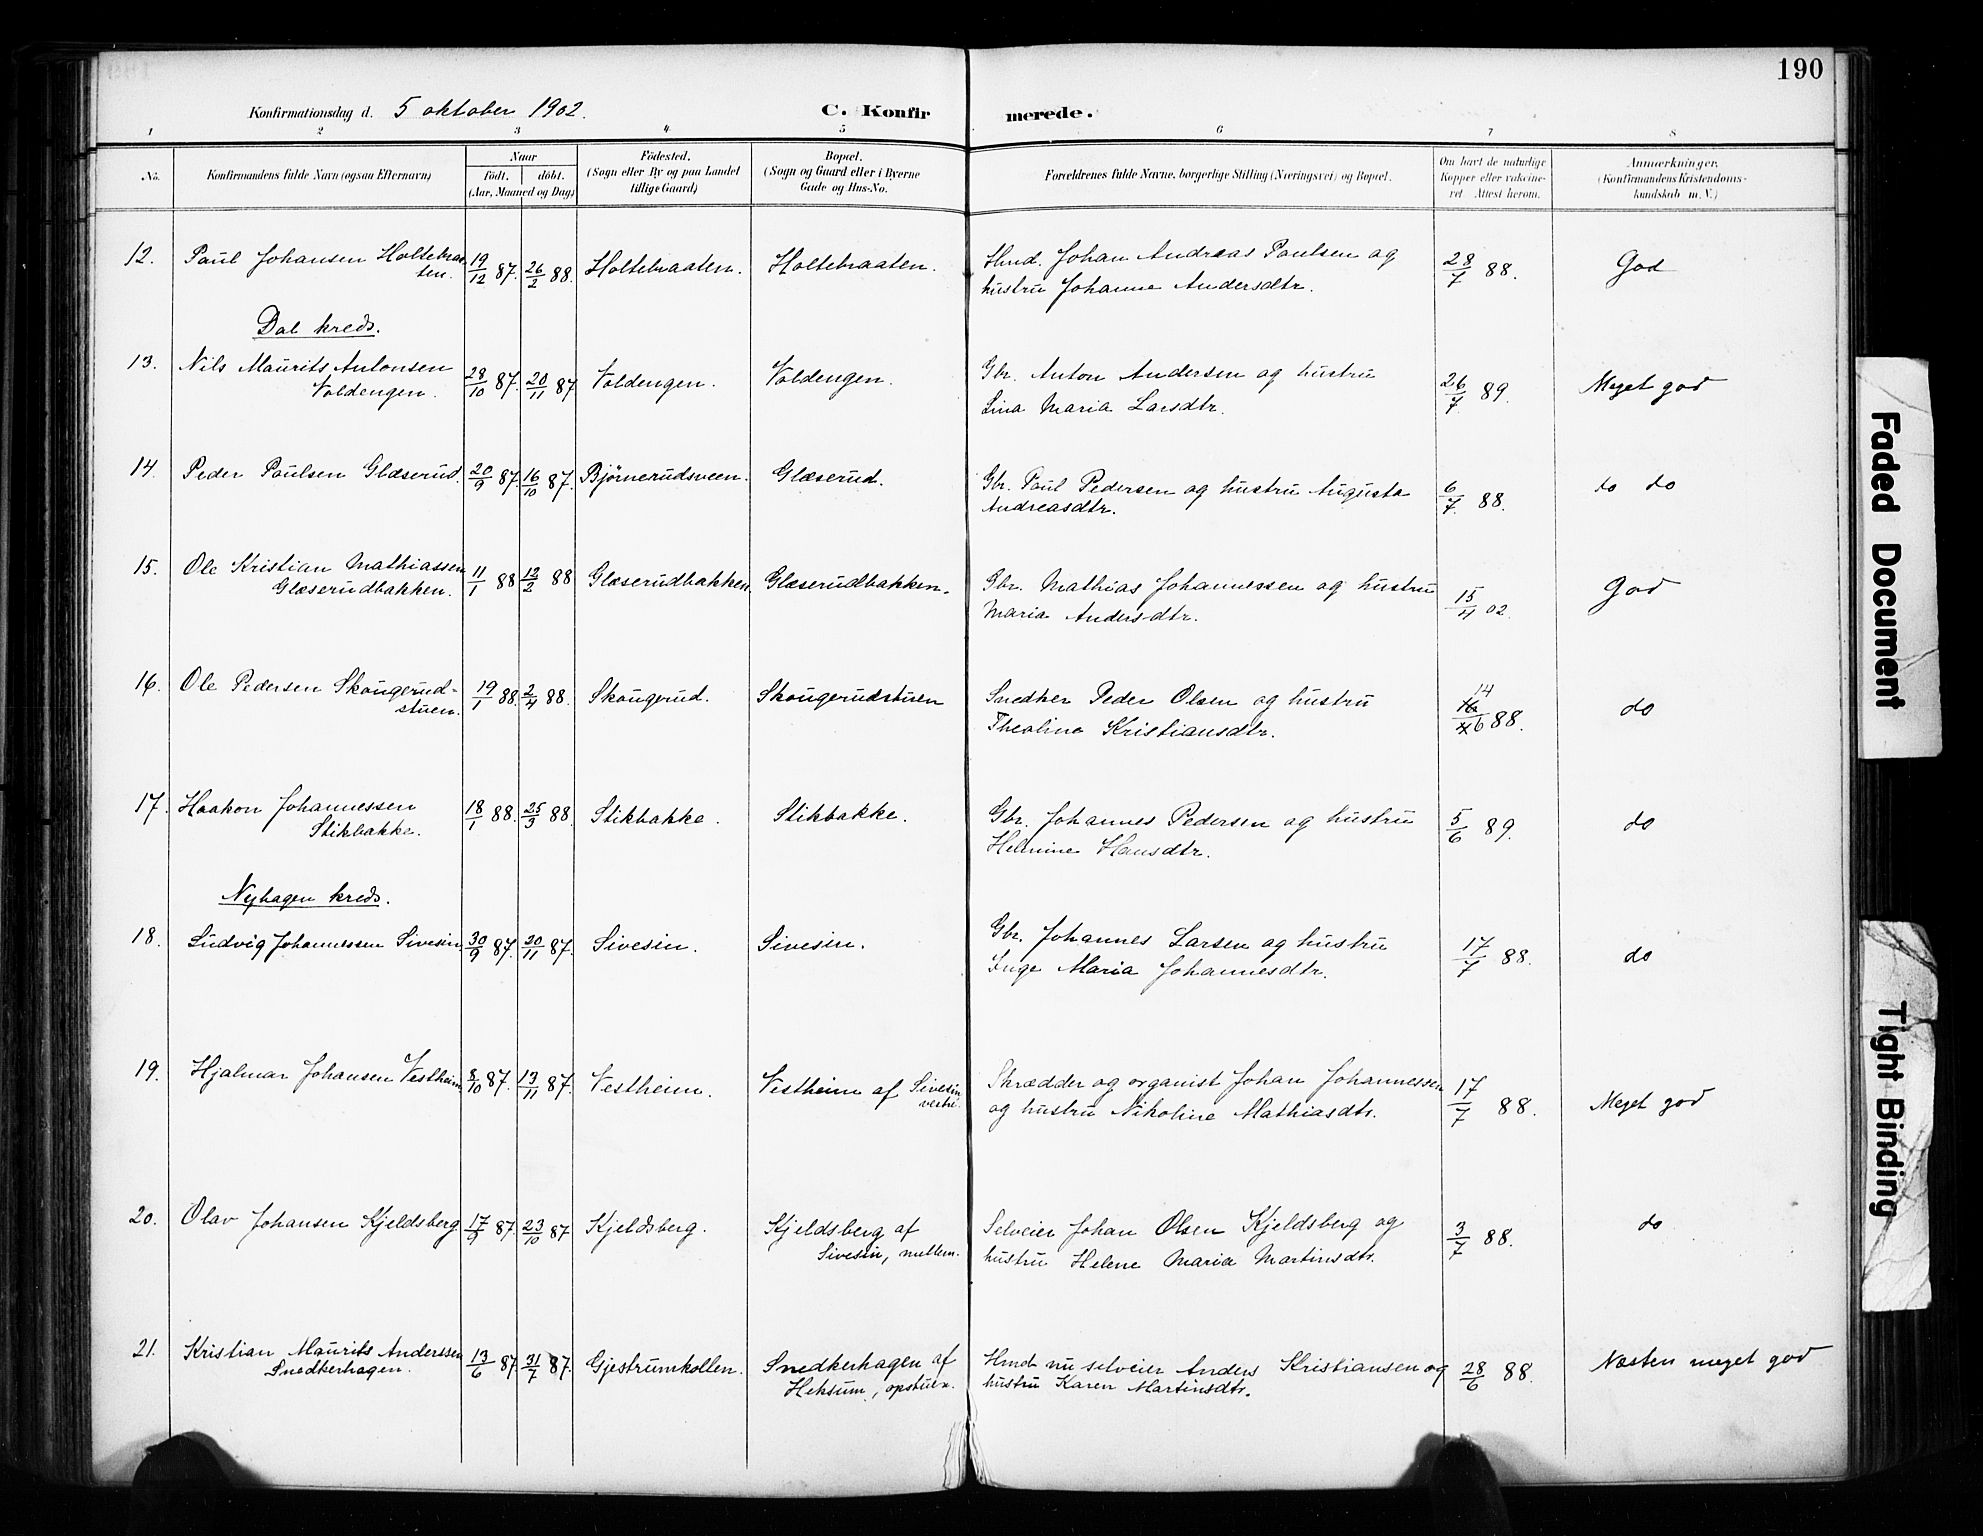 190
Konfirmationsdag d. 5 oktober 1902. C. Konfirmerede.
1 2 3 4 5 6 7 8
No. Konfirmandens fulde Navn (ogsaa Efternavn) Naar Födt. döbt. (Aar, Maaned og Dag) Födested. (Sogn eller By og paa Landet tillige Gaard) Bopæl. (Sogn og Gaard eller i Byerne Gade og Hus-No. Forældrenes fulde Navne, borgerlige Stilling (Næringsvei) og Bopæl. Om havt de naturlige Kopper eller vakcineret Attest herom. Anmærkninger. (Konfirmandens Kristendomskundskab m. V.)
12. Paul Johansen Holtebraaten. 19/12 87. 26/2 88. Holtebraaten. Holtebraaten. Hmd. Johan Andreas Paulsen og
hustru Johanne Andersdtr. 28/7 88. God
Dal kreds.
13. Nils Maurits Antonsen
Voldengen. 28/10 87. 20/11 87 Voldengen. Voldengen. Gbr. Anton Andersen og hustru
Lina Maria Larsdtr. 26/7. 89. Meget god
14. Peder Paulsen Glæserud. 20/9 87. 16/10 87. Bjørnerudsveen. Glæserud. Gbr. Paul Pedersen og hustru Augusta
Andreasdtr. 6/7. 88. do do
15. Ole Kristian Mathiassen
Glæserudbakken. 11/1 88 12/2 88 Glæserudbakken. Glæserudbakken. Gbr. Mathias Johannessen og hustru
Maria Andersdtr. 15/4 02. God
16. Ole Pedersen Skougerud-
stuen. 19/1 88. 2/4 88. Skougerud. Skougerudstuen Snedker Peder Olsen og hustru
Theoline Kristiansdtr. 14/6 88. do
17. Haakon Johannessen
Stikbakke. 18/1 88. 25/3 88. Stikbakke. Stikbakke. Gbr. Johannes Pedersen og hustru
Helmine Hansdtr. 5/6 89. do
Nyhagen kreds.
18. Ludvig Johannessen Sivesin. 30/9 87. 20/11 87. Sivesin. Sivesin. Gbr. Johannes Larsen og hustru
Inge Maria Johannesdtr. 17/7 88. do
19. Hjalmar Johansen Vestheim 8/10 87. 13/11 87. Vestheim. Vestheim af Sivesin,
vestre. Skrædder og organist Johan Johannessen
og hustru Nikoline Mathiasdtr. 17/7 88. Meget god
20. Olav Johansen Kjeldsberg 17/9 87. 23/10 87 Kjeldsberg. Kjeldsberg af
Sivesin, mellem. Selveier Johan Olsen Kjeldsberg og
hustru Helene Maria Martinsdtr. 3/7 88. do
21. Kristian Maurits Anderssen
Snedkerhagen. 13/6 87. 31/7 87. Gjestrumkollen. Snedkerhagen af
Heksum, opstuen. Hmd. nu selveier Anders Kristiansen og
hustru Karen Martinsdtr. 28/6 88. Næsten meget god
Faded Document
Tight Binding